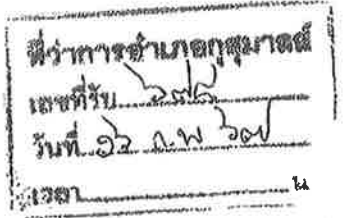 ที่ว่าการอำเภอกุสุมาลย์
เลขที่รับ ๖๗๘
วันที่ ๑๖ ก.พ ๖๗
เวลา น